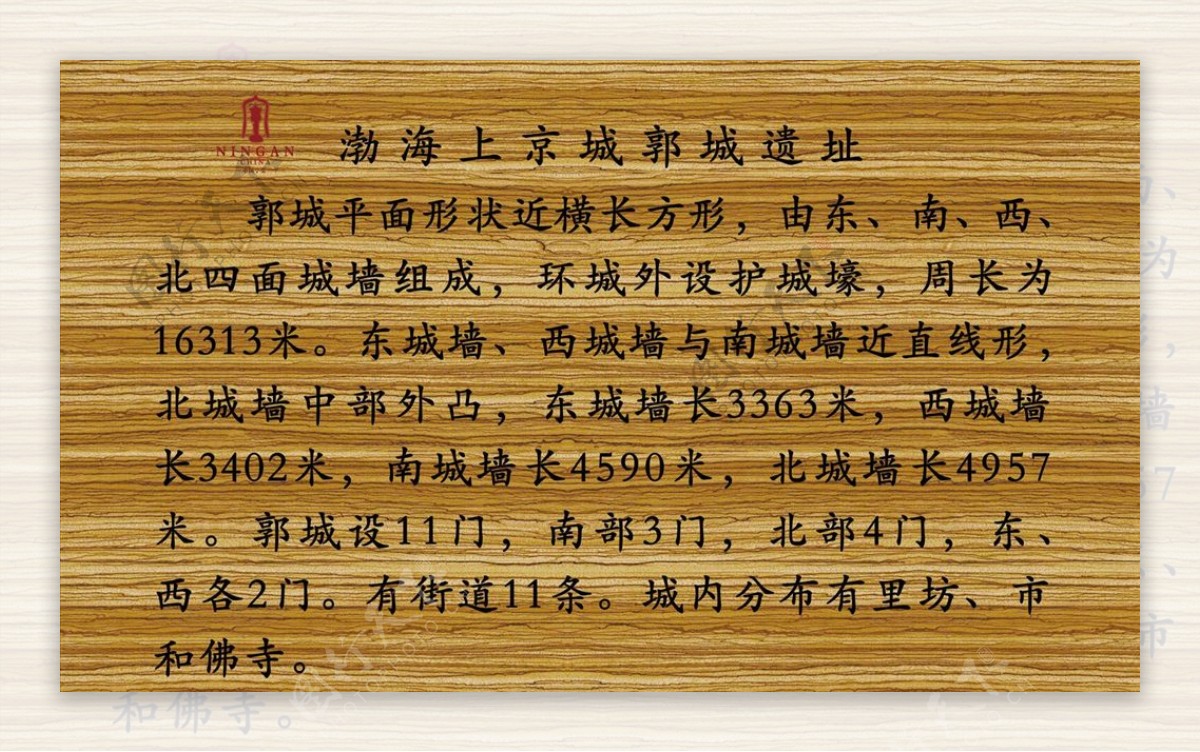 NINGAN
CHINA
渤海上京城郭城遗址
郭城平面形状近横长方形，由东、南、西、
北四面城墙组成，环城外设护城壕，周长为
16313米。东城墙、西城墙与南城墙近直线形，
北城墙中部外凸，东城墙长3363米，西城墙
长3402米，南城墙长4590米，北城墙长4957
米。郭城设11门，南部3门，北部4门，东、
西各2门。有街道11条。城内分布有里坊、市
和佛寺。